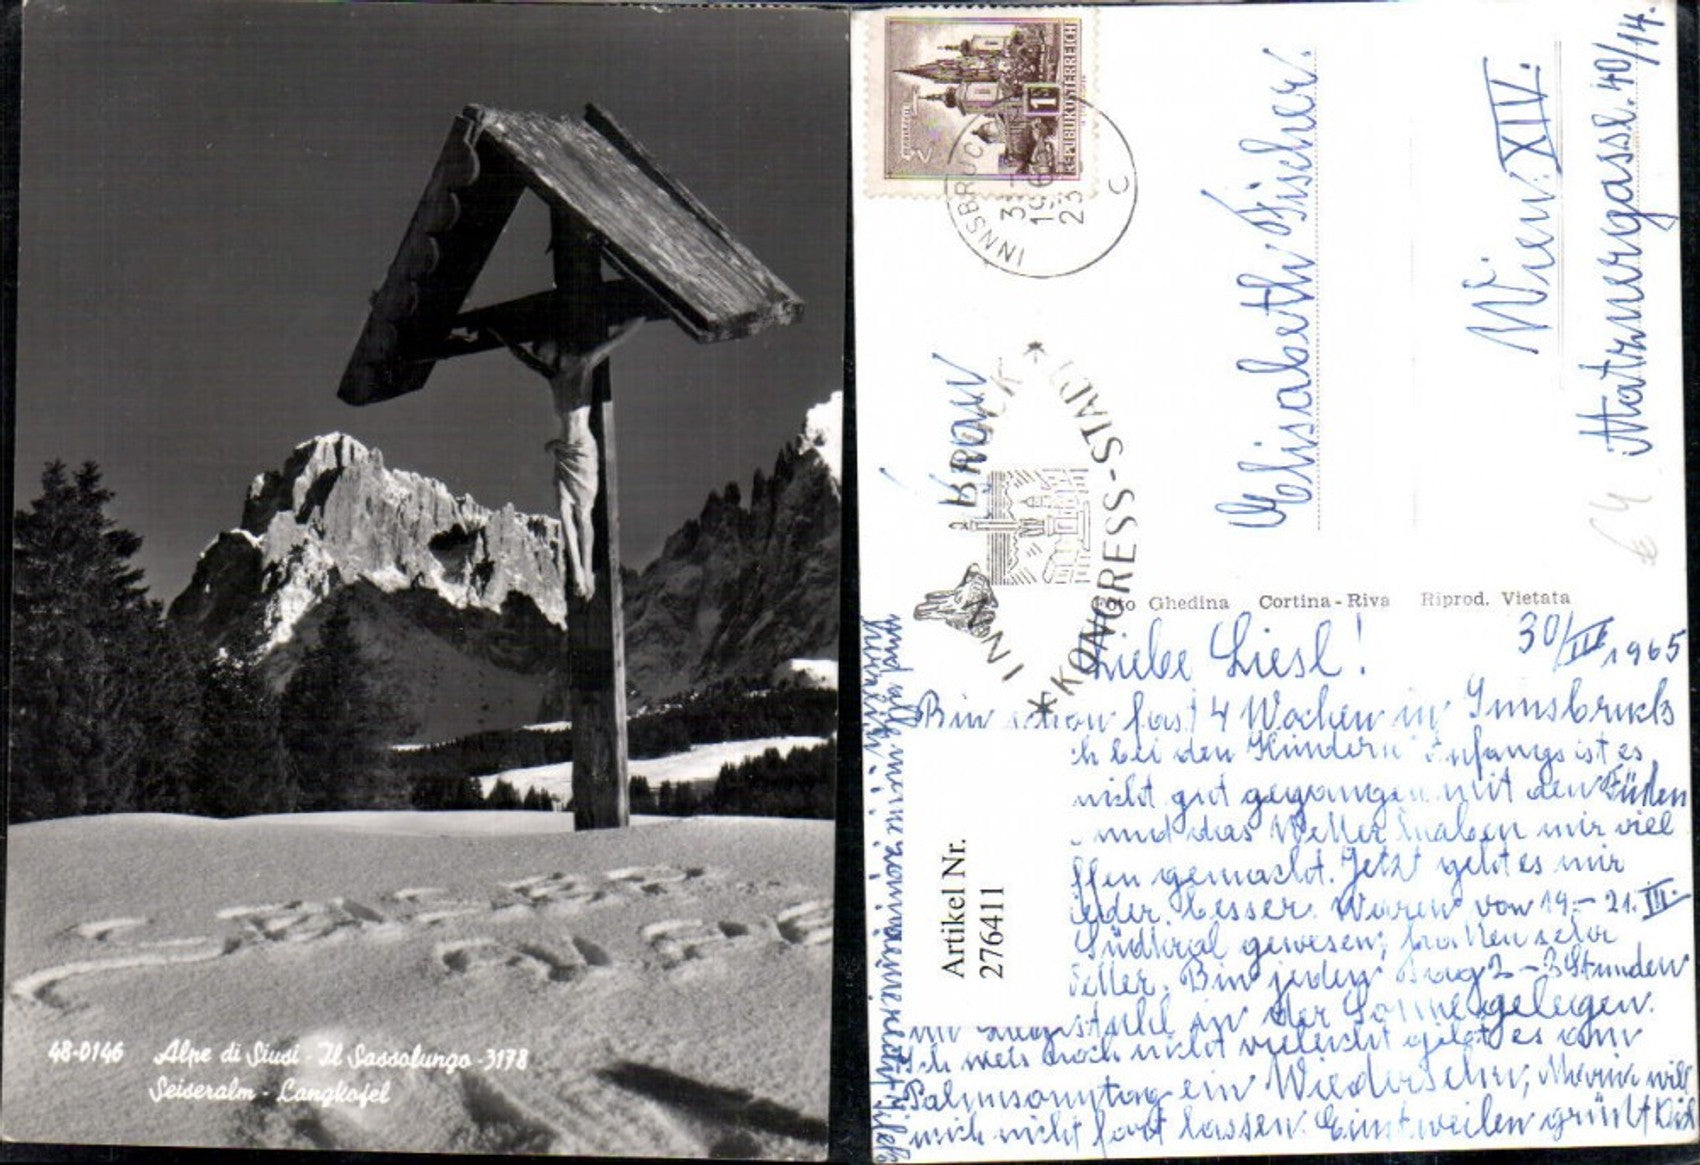 48-0146 Alpe di Siusi - Il Sassolungo - 3178
Seiseralm - Langkofel
REPUBLIK ÖSTERREICH
1
INNSBRUCK
23
C
INN
CK
KONGRESS-STADT
Frau
Elisabeth Fischer.
Wien XIV.
Matznergasse. 40/14.
€4
Foto Ghedina Cortina-Riva Riprod. Vietata
30/III 1965
Liebe Liesl!
Bin schon fast 4 Wochen in Innsbruck
ch bei den Kindern Anfangs ist es
nicht gut gegangen mit den Füßen
und das Wetter haben mir viel
ffen gemacht. Jetzt geht es mir
ieder besser. Waren von 19.- 21. III.
Südtirol gewesen, hatten sehr
etter. Bin jeden Tag 2-3 Stunden
im Liegestuhl in der Sonne gelegen.
Ich weis noch nicht vieleicht gibt es am
Palmsonntag ein Wiedersehn, Maria will
mich nicht fort lassen. Einstweilen grüßt Dich
und alle
Artikel Nr.
276411